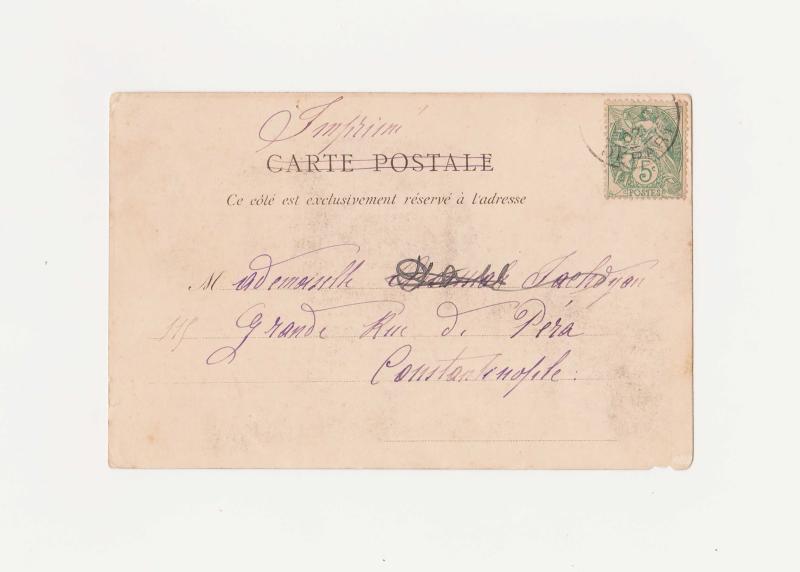 Imprimé
CARTE POSTALE
Ce côté est exclusivement réservé à l'adresse
Mademoiselle
115 Grande Rue de Péra
Constantinople.
5c
POSTES
PARIS